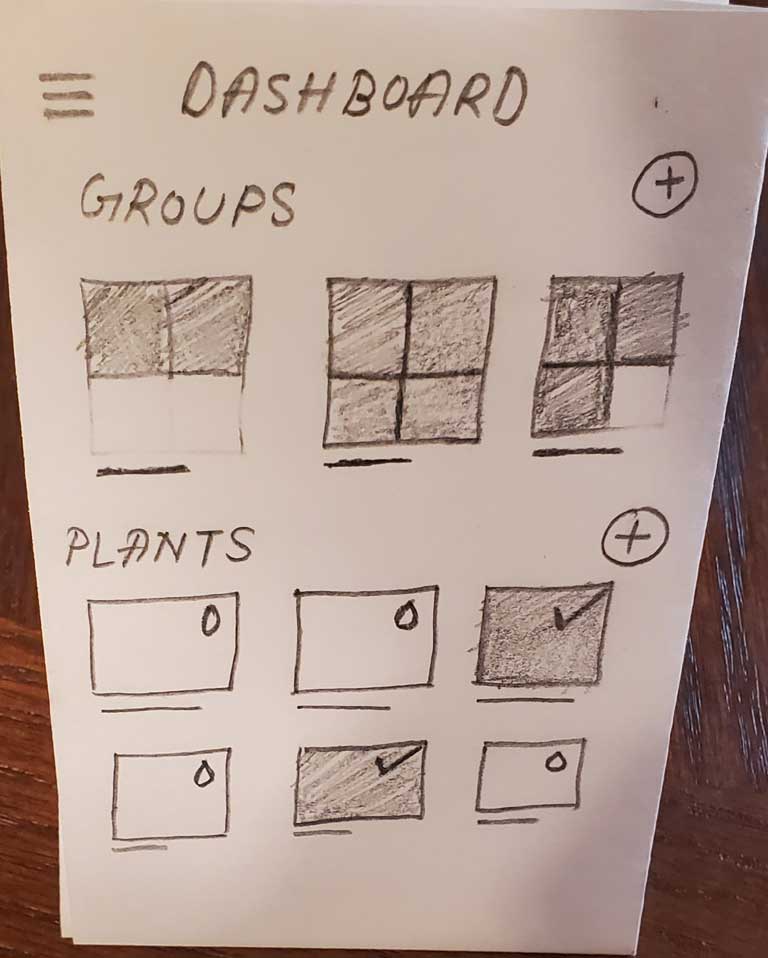 DASHBOARD
GROUPS
PLANTS